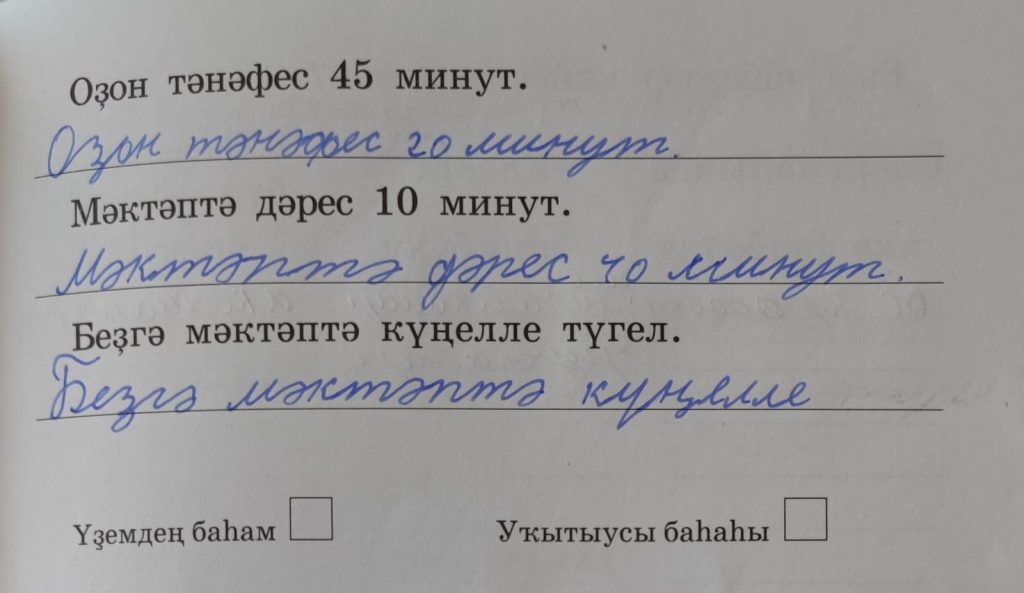 Оҙон тәнәфес 45 минут.
Оҙон тәнәфес 20 минут.
Мәктәптә дәрес 10 минут.
Мәктәптә дәрес 40 минут.
Беҙгә мәктәптә күңелле түгел.
Беҙгә мәктәптә күңелле
Үҙемдең баһам Уҡытыусы баһаһы